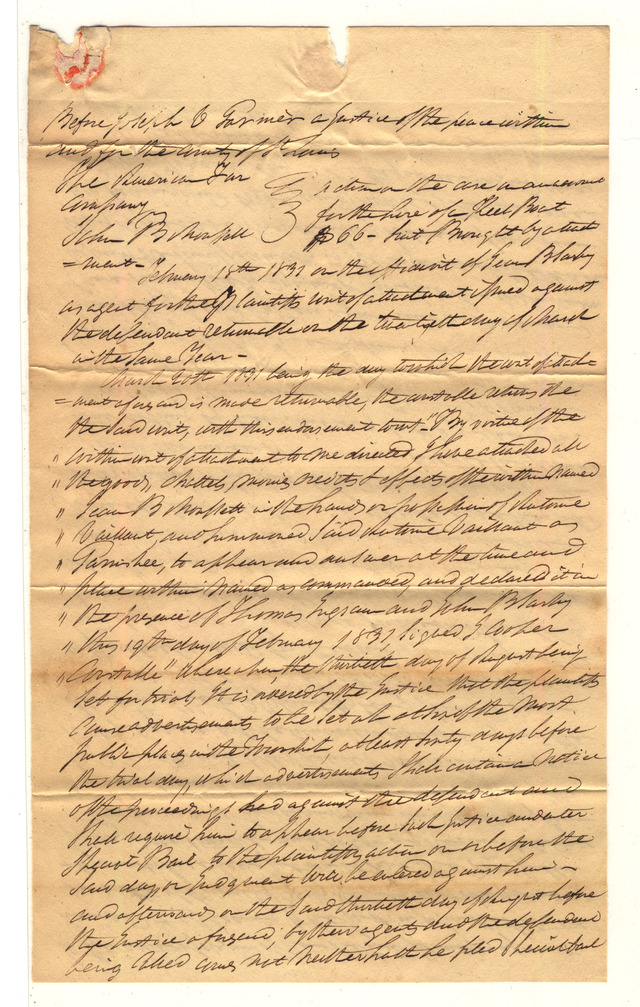 Before Joseph V Garnier a Justice of the peace within
and for the County of St Louis
The American Fur
Company
action on the case on an account
for the hire of a Keel Boat
John B
$66 - Suit Brought by attach
=ment - February 18th 1831 on the affidavit of Blarky
as agent for the Plaintiffs writ of attachment issued against
the defendant returnable on the twentieth day of March
in the same Year -
March 20th 1831 being the day to which the writ of attach=
=ment aforesaid is made returnable, the constable returns the
the said writ, with this endorsement to wit "By virtue of the
" within writ of attachment to me directed I have attached all
" the goods, chattels, monies credits & effects of the within named
" B in the hands or possession of Antoine
" Vaillant, and summoned said Antoine Vaillant as
" Garnishee, to appear and answer at the time and
" place within named as commanded, and declared it in
" the presence of Thomas Ingram and John Blarky
" this 19th day of February 1831 Signed Cooher
" Constable" Whereupon the thirtieth day of August being
set for trial, It is ordered by the Justice that the plaintiffs
cause advertisements to be set up at of the most
public places in the Township, at least forty days before
the trial day, which advertisements shall contain a notice
of the proceedings had against the defendant and
shall require him to appear before said Justice and enter
Special Bail to the plaintiffs action on or before the
said day or judgment will be entered against him -
and afterwards on the said thirtieth day of August before
the Justice aforesaid, by their agents and the defendant
being called comes not neither hath he filed special bail